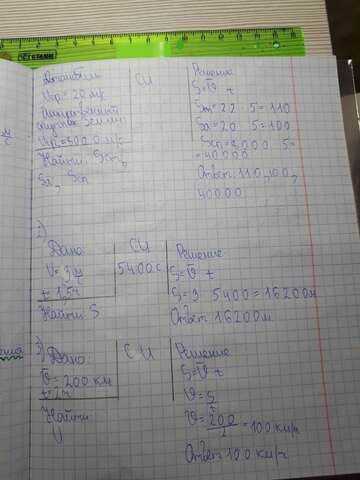 Автомобиль
Vср = 20 м/с
Искусственный
спутник Земли
Vср = 8000 м/с
Найти: Sсп,
Sа, Sсп
СИ
Решение
S = V t
22 5 = 110
Sа = 20 5 = 100
Sсп = 8000 5 =
= 40000
Ответ: 110, 100,
40000
2)
Дано:
V = 3
t = 1,5ч
Найти S
СИ
5400 с.
Решение
S = V t
S = 3 5400 = 16200м
Ответ 16200м.
3)
Дано:
V = 200 км
t = 2ч
Найти
СИ
Решение
S = V t
V = S/t
V = 200/2 = 100 км/ч
Ответ 100 км/ч